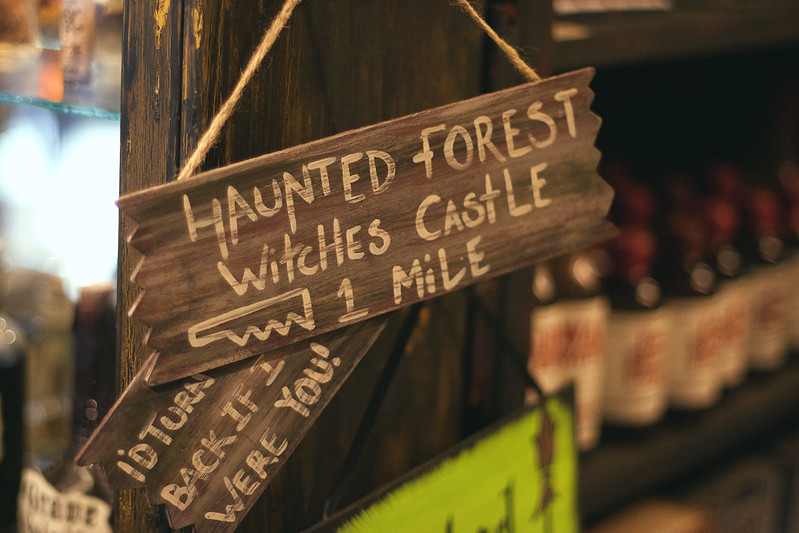 HAUNTED FOREST
WitcHES CAStLE
1 MiLE
I'D TURN
BACK IF I
WERE YOU!